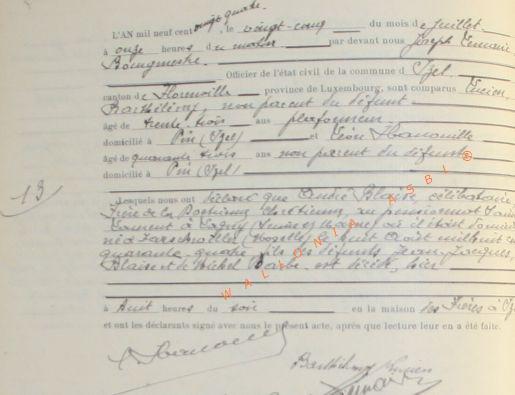 vingt quatre
L'AN mil neuf cent , le vingt-cinq du mois de juillet
à onze heures du matin par devant nous Joseph Lemaire
Bourgmestre
Officier de l'état civil de la commune d'Izel
canton de Florenville province de Luxembourg, sont comparus Lucien
Barthélemy, non parent du défunt
âgé de trente-trois ans plafonneur
domicilié à Pin (Izel) et Léon
âgé de quarante trois ans non parent du défunt
domicilié à Pin (Izel)
13
Lesquels nous ont déclaré que André Blaise, célibataire
Frère de la Doctrine Chrétienne, au pensionnat Saint
Laurent à Lagny (Seine et Marne) où il était domicilié
né à (Moselle) le huit Août mil huit cent
quarante-quatre, fils des défunts Jean Jacques
Blaise et de Michel Barbe, est décédé, hier
à huit heures du soir en la maison des Frères à Izel
et ont les déclarants signé avec nous le présent acte, après que lecture leur en a été faite.
Barthélemy Lucien
WALLONIA ASBL ®